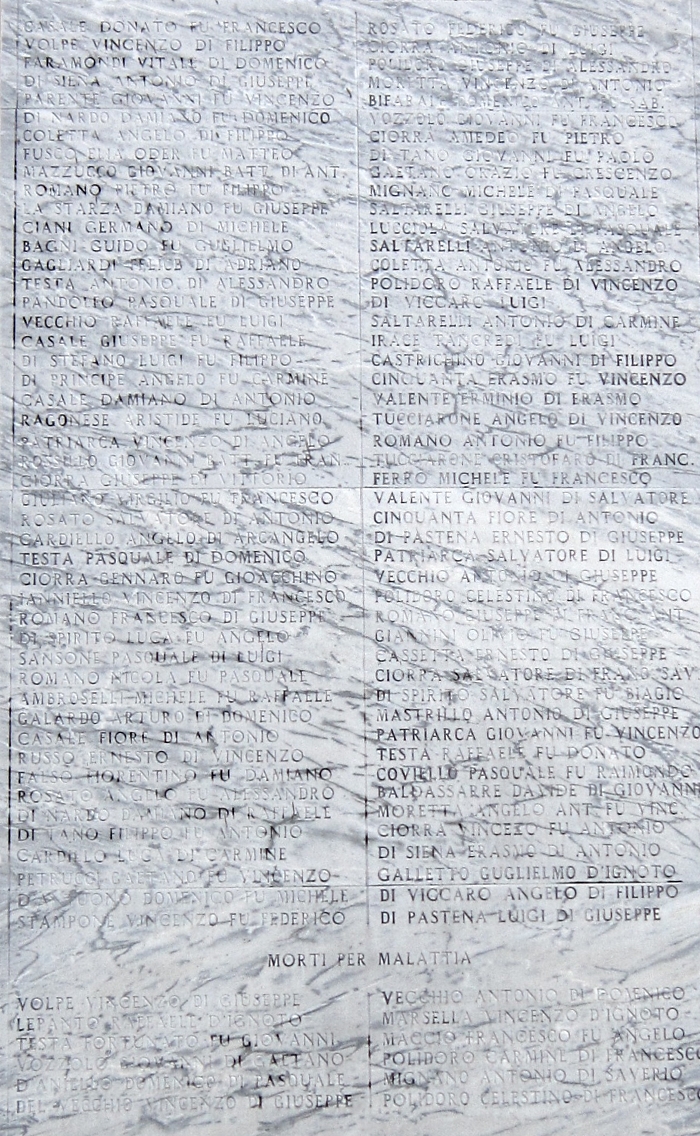 CASALE DONATO FU FRANCESCO
VOLPE VINCENZO DI FILIPPO
FARAMONDI VITALE DI DOMENICO
DI SIENA ANTONIO DI GIUSEPPE
PARENTE GIOVANNI FU VINCENZO
DI NARDO DAMIANO FU DOMENICO
COLETTA ANGELO DI FILIPPO
FUSCO ELIA ODER FU MATTEO
MAZZUCCO GIOVANNI BATT. DI ANT.
ROMANO PIETRO FU FILIPPO
LA STARZA DAMIANO FU GIUSEPPE
CIANI GERMANO DI MICHELE
BAGNI GUIDO FU GUGLIELMO
GAGLIARDI FELICE DI ADRIANO
TESTA ANTONIO DI ALESSANDRO
PANDOLFO PASQUALE DI GIUSEPPE
VECCHIO RAFFAELE FU LUIGI
CASALE GIUSEPPE FU RAFFAELE
DI STEFANO LUIGI FU FILIPPO
DI PRINCIPE ANGELO FU CARMINE
CASALE DAMIANO DI ANTONIO
RAGONESE ARISTIDE FU LUCIANO
PATRIARCA VINCENZO DI ANGELO
ROSSILLO GIOVANNI BATT. FU FRAN.
CIORRA GIUSEPPE DI VITTORIO
GIULIANO VIRGILIO FU FRANCESCO
ROSATO SALVATORE DI ANTONIO
CARDIELLO ANGELO DI ARCANGELO
TESTA PASQUALE DI DOMENICO
CIORRA GENNARO FU GIOACCHINO
IANNIELLO VINCENZO DI FRANCESCO
ROMANO FRANCESCO DI GIUSEPPE
DI SPIRITO LUCA FU ANGELO
SANSONE PASQUALE DI LUIGI
ROMANO NICOLA FU PASQUALE
AMBROSELLI MICHELE FU RAFFAELE
GALARDO ARTURO DI DOMENICO
CASALE FIORE DI ANTONIO
RUSSO ERNESTO DI VINCENZO
FALSO FIORENTINO FU DAMIANO
ROSATO ANGELO FU ALESSANDRO
DI NARDO DAMIANO DI RAFFAELE
DI TANO FILIPPO FU ANTONIO
CARDILLO LUCA DI CARMINE
PETRUCCI GAETANO FU VINCENZO
DOMENICO FU MICHELE
STAMPONE VINCENZO FU FEDERICO
ROSATO FEDERICO FU GIUSEPPE
CIORRA ANTONIO DI LUIGI
POLIDORO GIUSEPPE DI ALESSANDRO
MORETTA VINCENZO DI ANTONIO
ANT. FU SAB.
VOZZOLO GIOVANNI FU FRANCESCO
CIORRA AMEDEO FU PIETRO
DI TANO GIOVANNI FU PAOLO
GAETANO ORAZIO FU CRESCENZO
MIGNANO MICHELE DI PASQUALE
SALTARELLI GIUSEPPE DI ANGELO
LUCCIOLA SALVATORE DI PASQUALE
SALTARELLI ANTONIO DI ANGELO
COLETTA ANTONIO FU ALESSANDRO
POLIDORO RAFFAELE DI VINCENZO
DI VICCARO LUIGI
SALTARELLI ANTONIO DI CARMINE
IRACE TANCREDI FU LUIGI
CASTRICHINO GIOVANNI DI FILIPPO
CINQUANTA ERASMO FU VINCENZO
VALENTE ERMINIO DI ERASMO
TUCCIARONE ANGELO DI VINCENZO
ROMANO ANTONIO FU FILIPPO
TUCCIARONE CRISTOFARO DI FRANC.
FERRO MICHELE FU FRANCESCO
VALENTE GIOVANNI DI SALVATORE
CINQUANTA FIORE DI ANTONIO
DI PASTENA ERNESTO DI GIUSEPPE
PATRIARCA SALVATORE DI LUIGI
VECCHIO ANTONIO DI GIUSEPPE
POLIDORO CELESTINO DI FRANCESCO
ROMANO GIUSEPPE
GIANNINI FU GIUSEPPE
CASSETTA ERNESTO DI GIUSEPPE
CIORRA SALVATORE DI FRANC. SAV.
DI SPIRITO SALVATORE FU BIAGIO
MASTRILLO ANTONIO DI GIUSEPPE
PATRIARCA GIOVANNI FU VINCENZO
TESTA RAFFAELE FU DONATO
COVIELLO PASQUALE FU RAIMONDO
BALDASSARRE DAVIDE DI GIOVANNI
MORETTA ANGELO ANT. FU VINC.
CIORRA VINCENZO FU ANTONIO
DI SIENA ERASMO DI ANTONIO
GALLETTO GUGLIELMO D'IGNOTO
DI VICCARO ANGELO DI FILIPPO
DI PASTENA LUIGI DI GIUSEPPE
MORTI PER MALATTIA
VOLPE VINCENZO DI GIUSEPPE
LEPANTO RAFFAELE D'IGNOTO
TESTA FORTUNATO FU GIOVANNI
VOZZOLO GIOVANNI DI GAETANO
D'ANIELLO DOMENICO DI PASQUALE
DEL VECCHIO VINCENZO DI GIUSEPPE
VECCHIO ANTONIO DI DOMENICO
MARSELLA VINCENZO D'IGNOTO
MACCIO FRANCESCO FU ANGELO
POLIDORO CARMINE DI FRANCESCO
MIGNANO ANTONIO DI SAVERIO
POLIDORO CELESTINO DI FRANCESCO